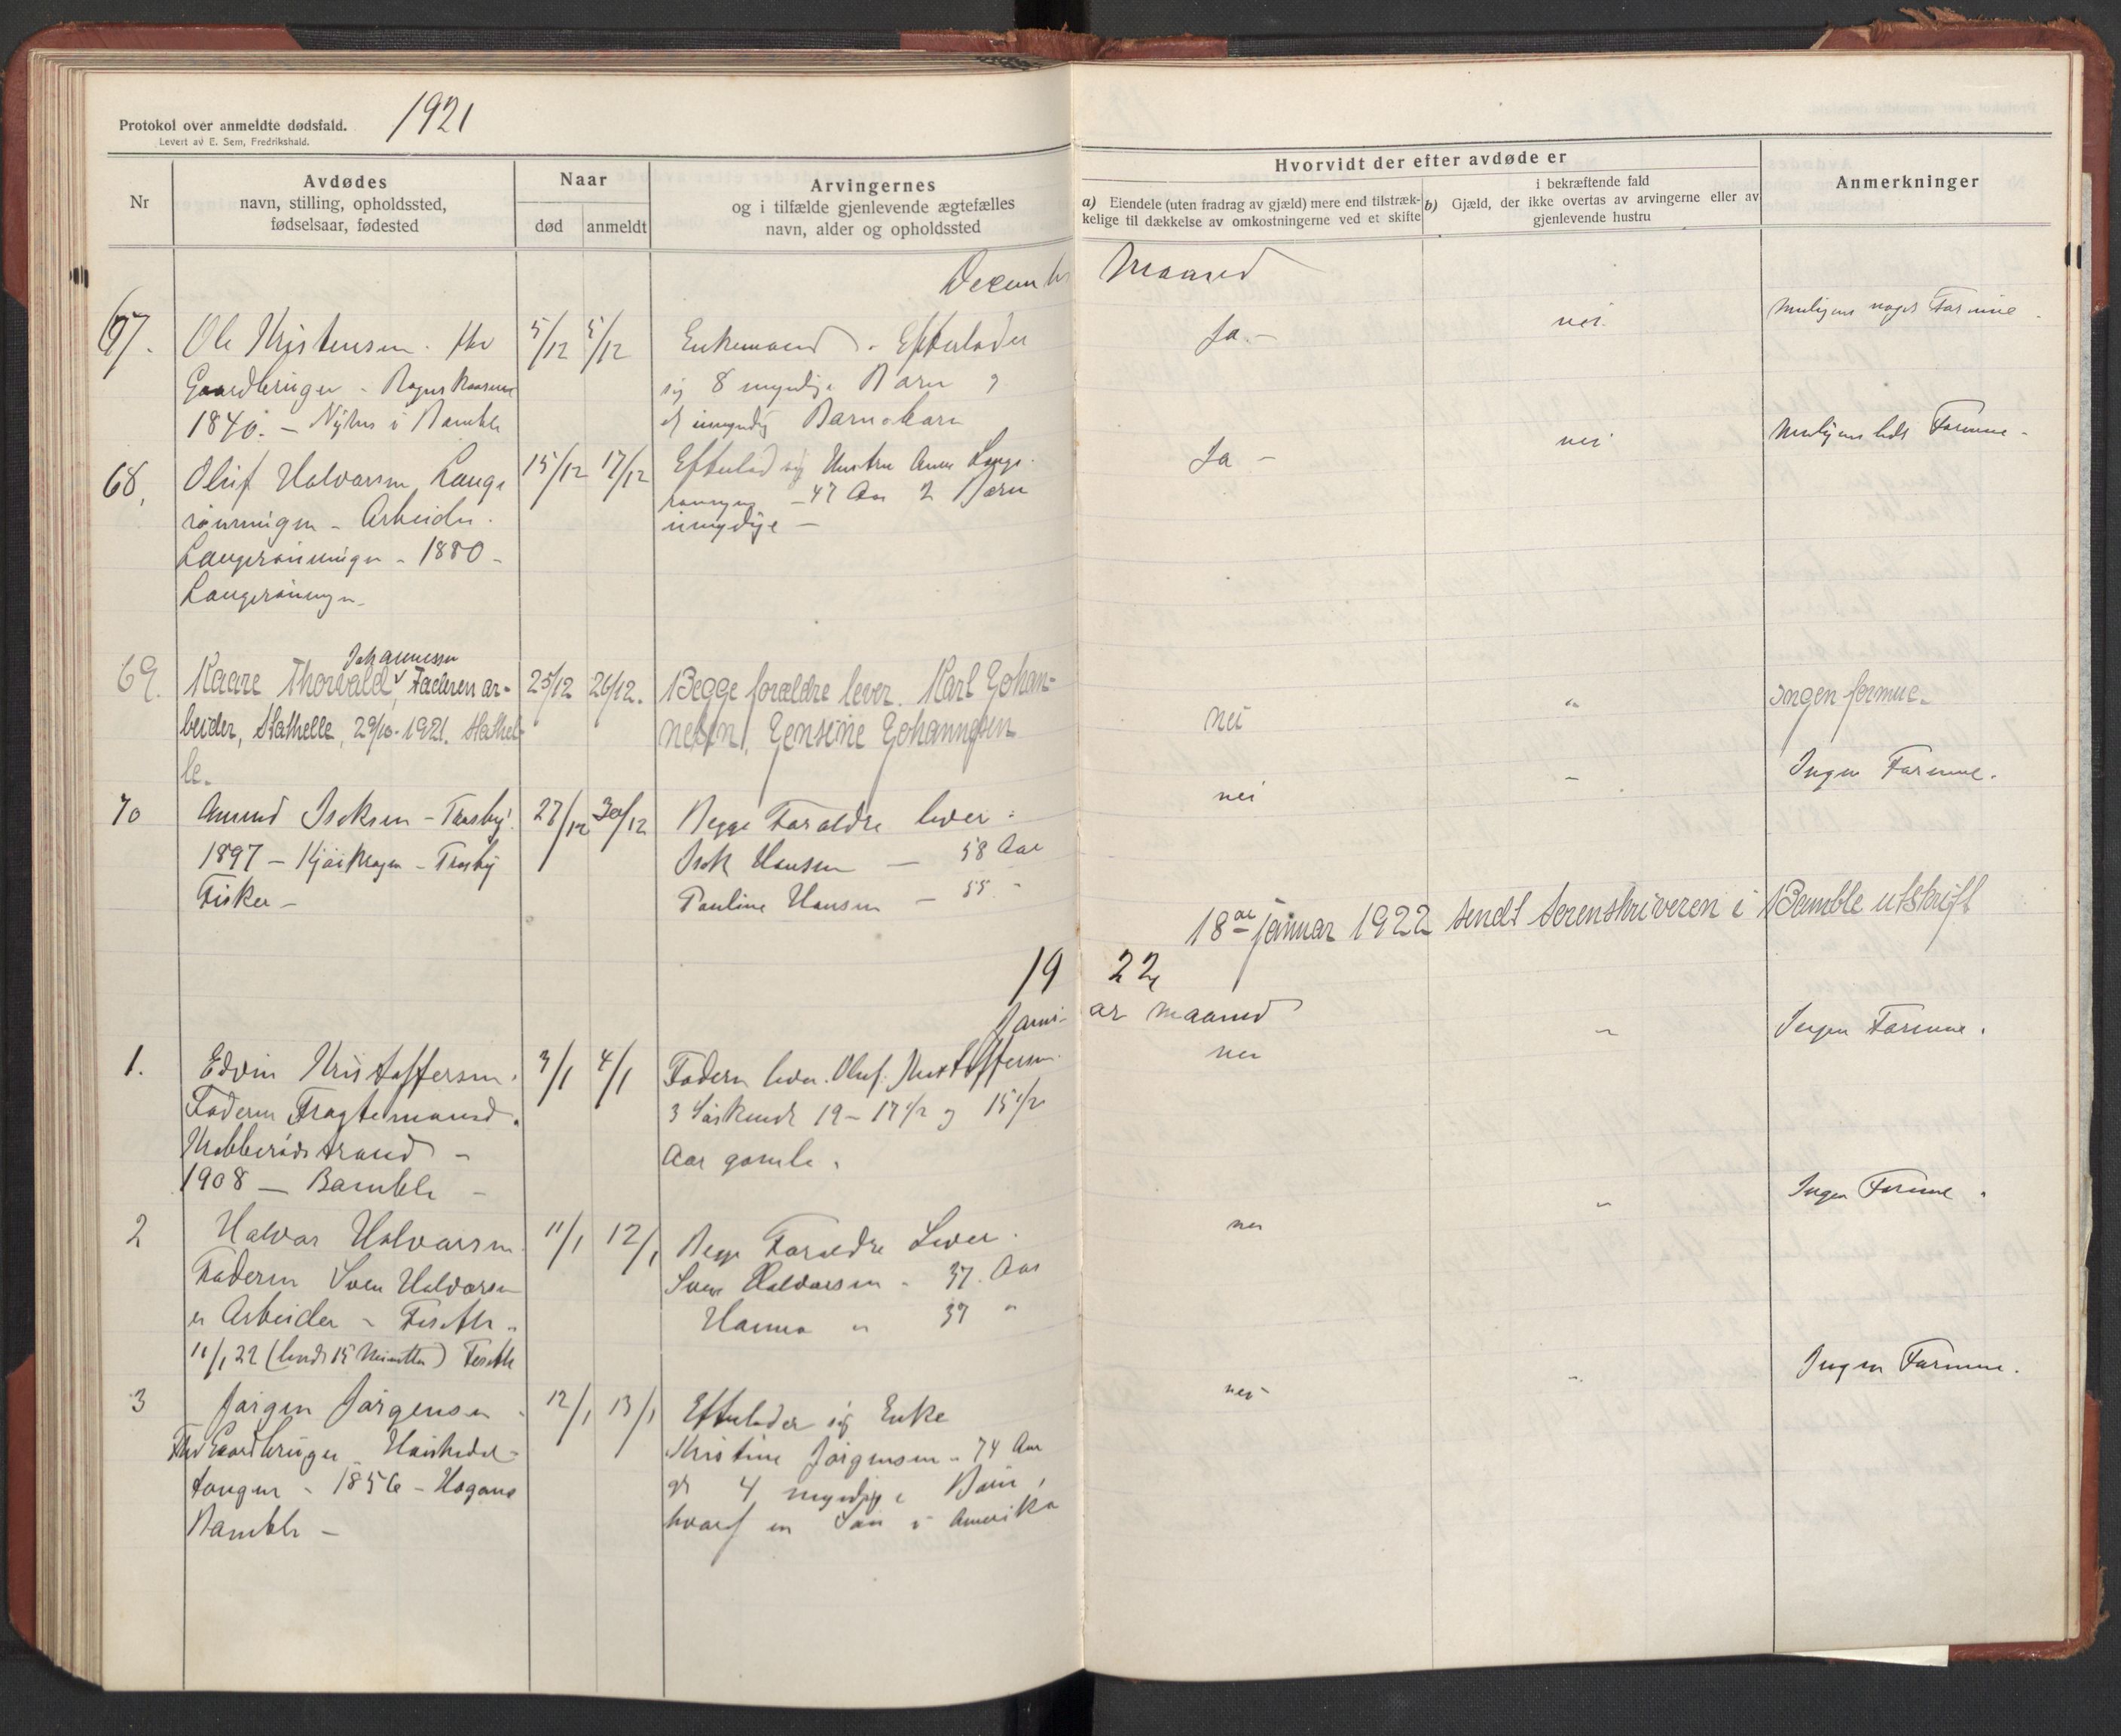 Protokol over anmeldte dødsfald. 1921
Levert av E. Sem, Fredrikshald.
Nr
Avdødes
navn, stilling, opholdssted,
fødselsaar, fødested
Naar
død
anmeldt
Arvingernes
og i tilfælde gjenlevende ægtefælles
navn, alder og opholdssted
Hvorvidt der efter avdøde er
a) Eiendele (uten fradrag av gjæld) mere end tilstræk-
kelige til dækkelse av omkostningerne ved et skifte
i bekræftende fald
b) Gjæld, der ikke overtas av arvingerne eller av
gjenlevende hustru
Anmerkninger
Decembr Maaned
67. Ole Kristensen. 5/12 5/12 Enkemand. Efterlader Ja. nei. Muligens noget Formue.
Gaardbruger - sig 8 myndige Barn og
1840. - Nyhus i Bamble et umyndig Barnebarn
68. Oluf Halvorsen Lange 15/12 17/12 Efterlad sig Hustru Anne Lange Ja - nei Muligens lidt Formue -
rønningen - Arbeider. - 47 Aar 2 Børn
Langerønningen - 1880 - umydige -
Langerønningen -
Johannessen
69. Kaare Thorvald, Faderen ar- 25/12 26/12. Begge forældre lever. Karl Johan- nei " Ingen formue.
beider, Stathelle, 29/10-1921. Stathel- nessen, Jensine Johannessen
le.
70 Amund Isaksen - Trosby. 27/12 30/12 Begge Foraldre lever: nei - Ingen Formue.
1897 - - Trosby Isak Hansen - 58 Aar
Fisker - Pauline Hansen - 55 "
18de januar 1922 sendt sorenskriveren i Bamble utskrift
1922
Januar Maaned
1. Edvin Kristoffersen. 3/1 4/1 Fadern lever. Oluf Kristoffersen. nei " Ingen Formue.
Faderen Fragtemand. 3 Søskende 19 - 17 1/2 og 15 1/2
Krabberødstrand - Aar gamle.
1908 - Bamble -
2 Halvor Halvorsen. 11/1 12/1 Begge Foraldre Lever. nei " Ingen Formue.
Faderen Sven Halvorsen Sven Halvorsen - 37 Aar
er Arbeider - Feseth. Hanna " 37 "
11/1 22 (levde 15 Minutter) Feseth
3 Jørgen Jørgensen. 12/1 13/1 Efterlader sig Enke nei - " Ingen Formue.
Gaardbruger Kristine Jørgensen - 74 Aar
tangen - 1856 - og 4 myndige Børn,
Bamble - hvoraf en Søn i Amerika